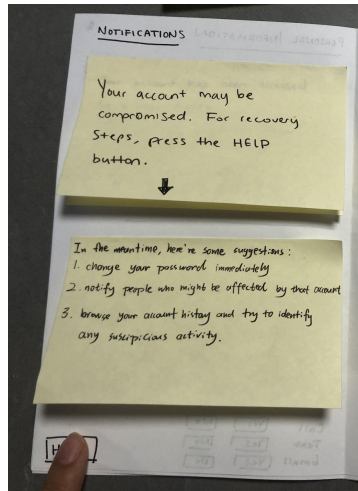 NOTIFICATIONS
Your account may be
compromised. For recovery
steps, press the HELP
button.
In the meantime, here're some suggestions:
1. change your password immediately
2. notify people who might be affected by that account
3. browse your account history and try to identify
any suscipicious activity.